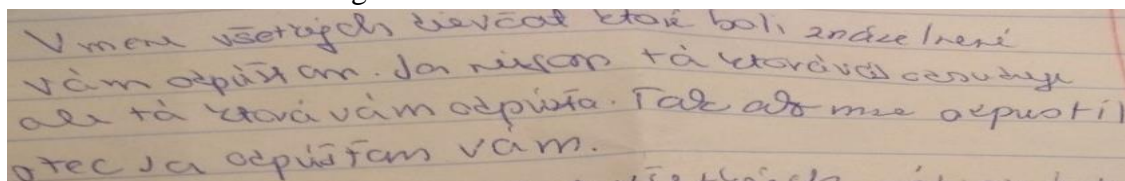 V mene všetkých dievčat ktoré boli znáselnené
vám odpúšťam. Ja niesom tá ktorá vás odsudzuje
ale tá ktorá vám odpúšťa. Tak ako mne odpustil
otec Ja odpúšťam vám.